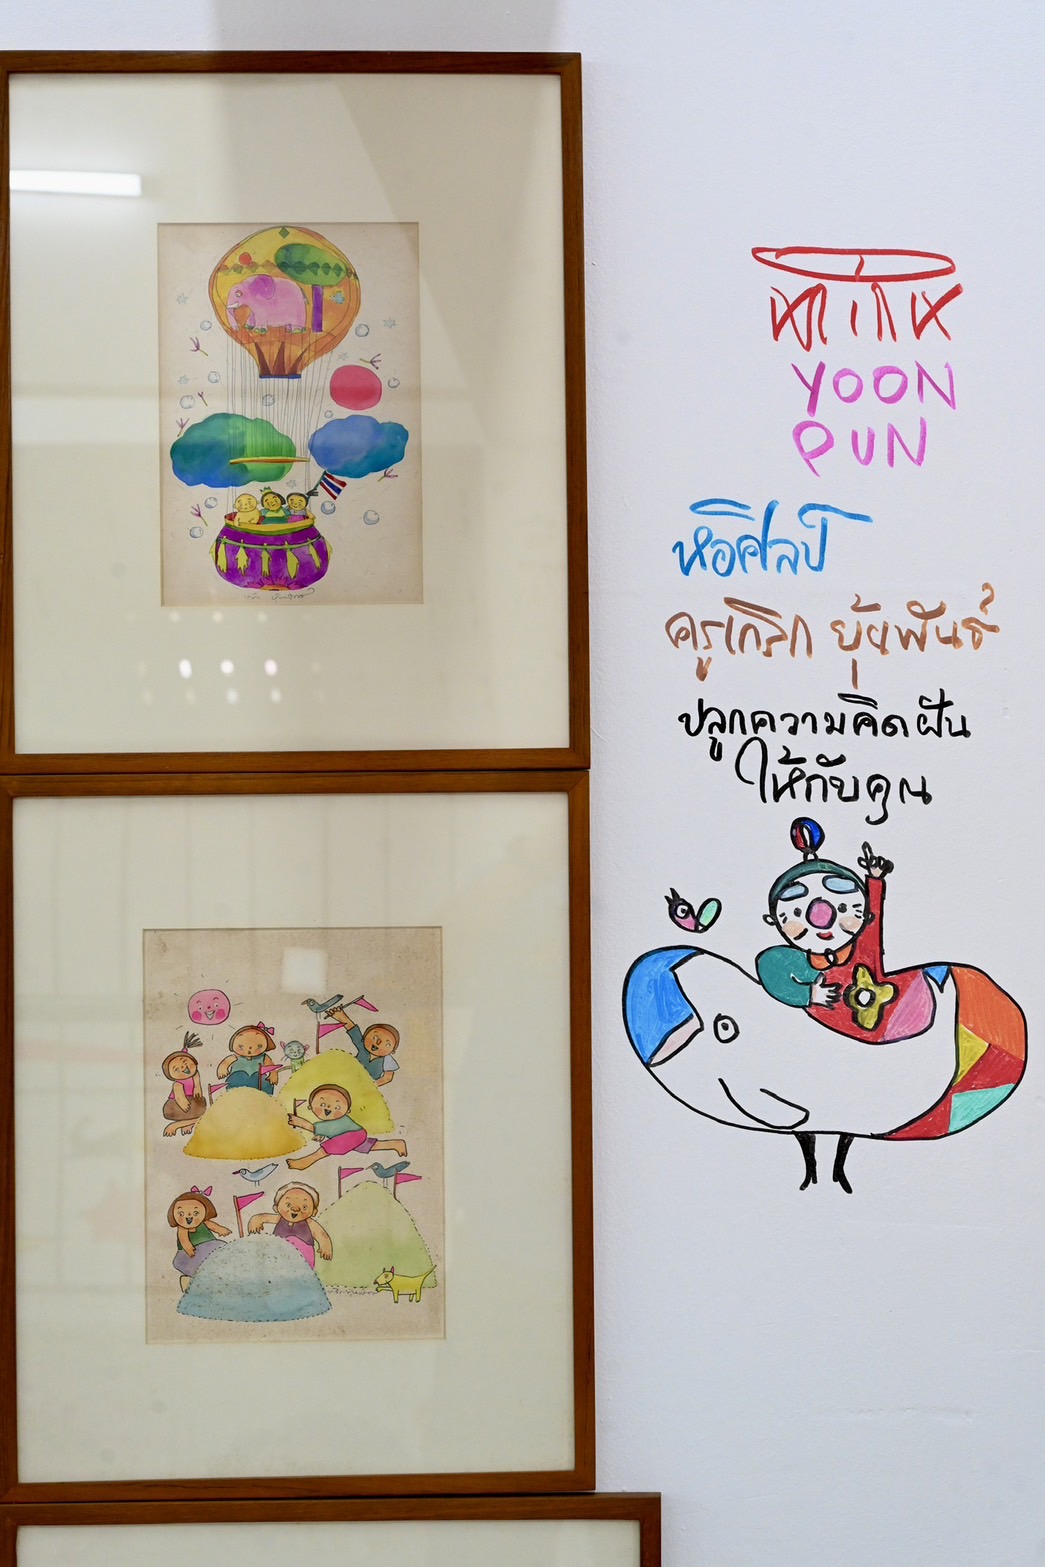 YOON
PUN
หอศิลป์
ครูเกริก ยุ้นพันธ์
ปลูกความคิดฝัน
ให้กับคุณ